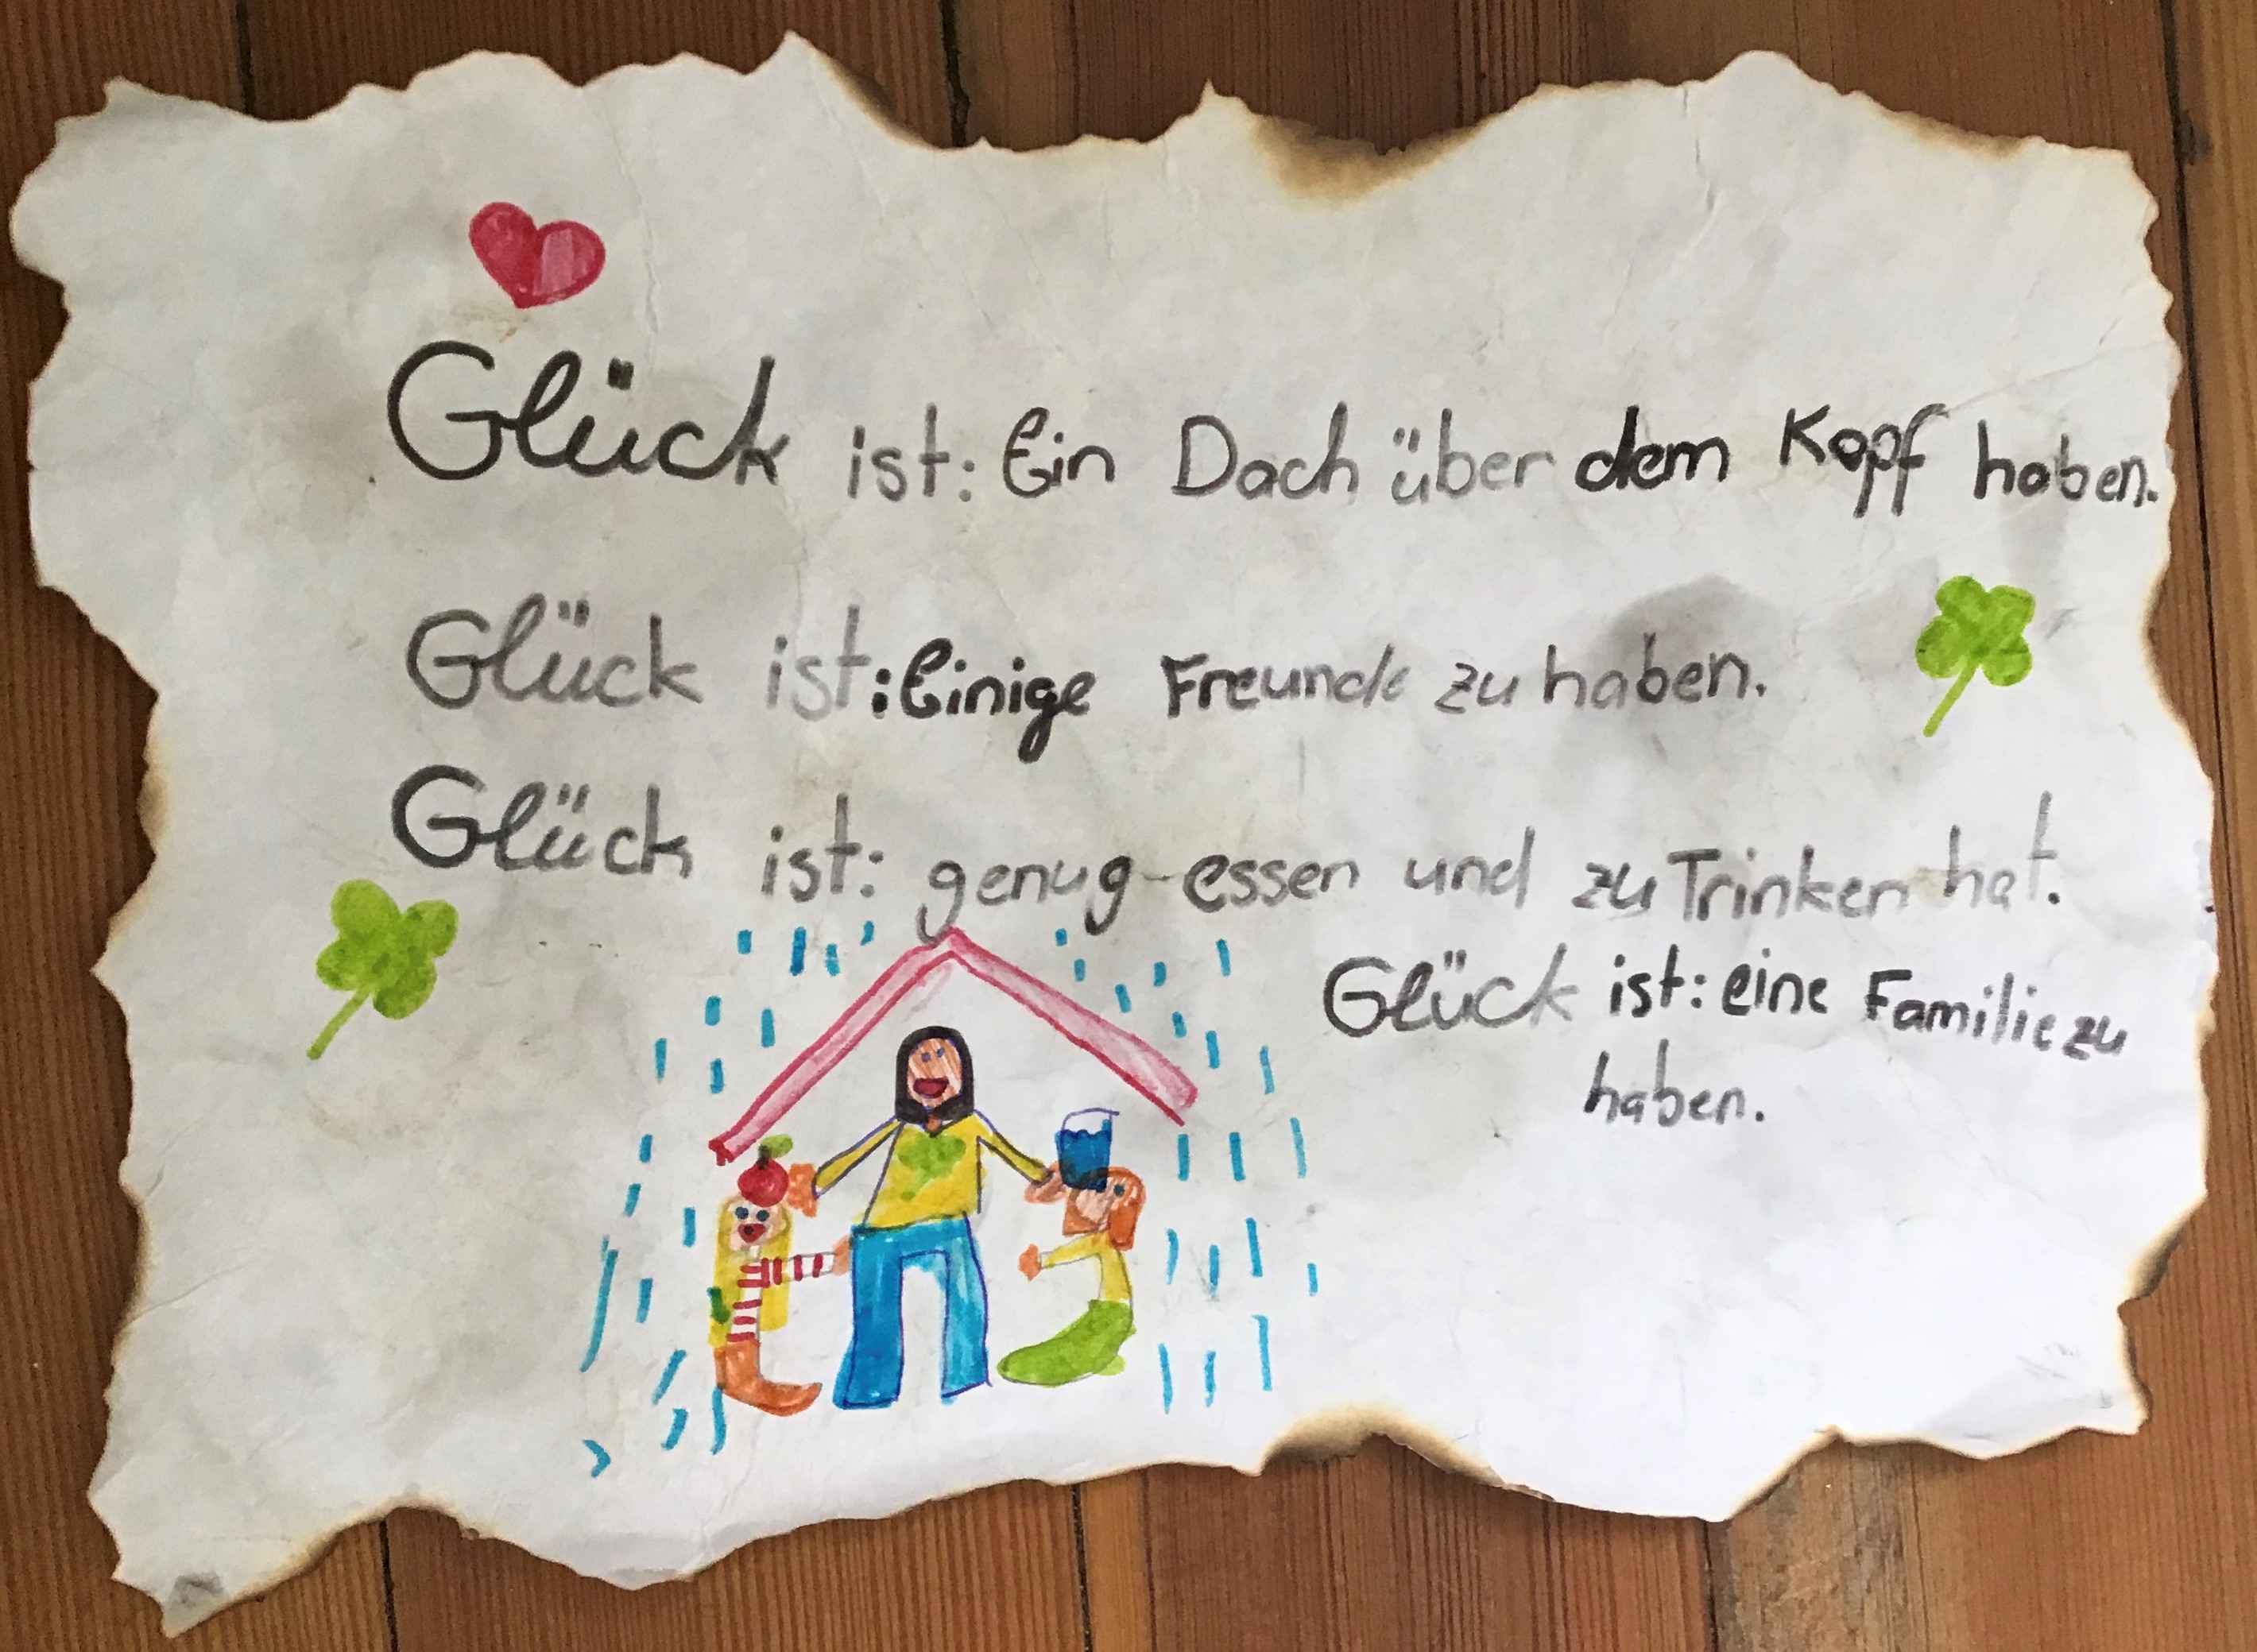 Glück ist: Ein Dach über dem Kopf haben.
Glück ist: Einige Freunde zu haben.
Glück ist: genug essen und zu Trinken hat.
Glück ist: eine Familie zu
haben.